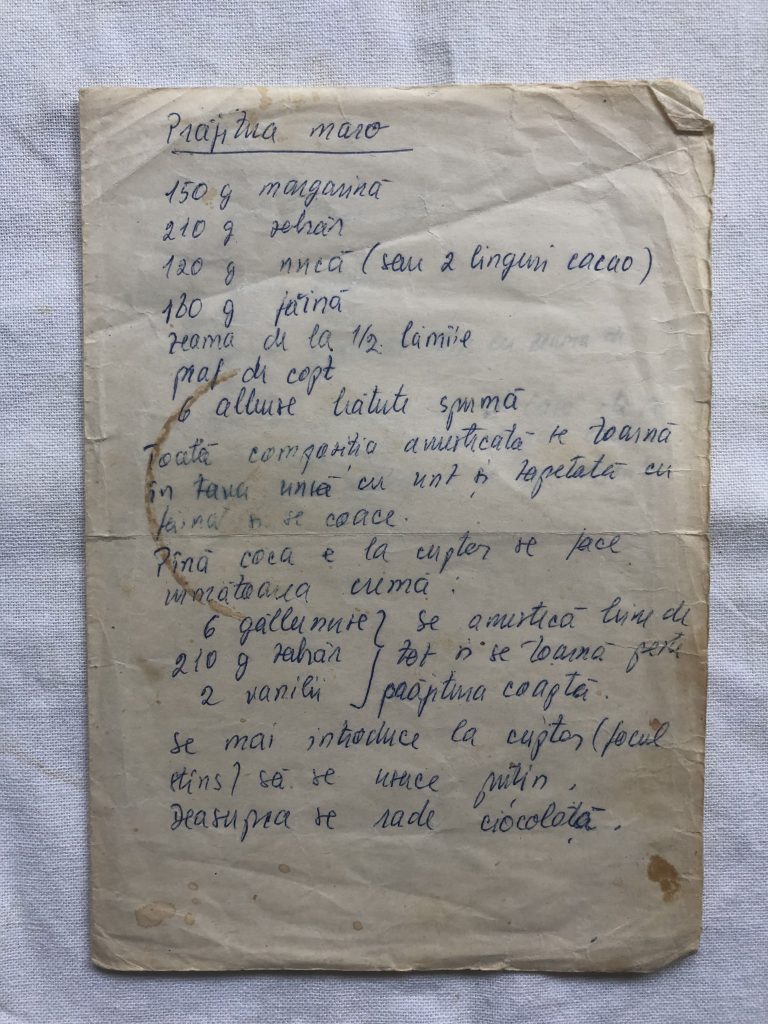 Prăjitua maro
150 g margarină
210 g zahăr
120 g nucă (sau 2 linguri cacao)
180 g făină
zeama de la 1/2 lămîie
praf de copt
6 albușe bătute spumă
Toată compoziția amestecată se toarnă
în tava unsă cu unt și tapetată cu
făină și se coace.
Pînă coca e la cuptor se face
următoarea cremă:
6 gălbenușe } se amestecă bine de
210 g zahăr } tot și se toarnă peste
2 vanilii } prăjitura coaptă.
Se mai introduce la cuptor (focul
stins) să se usuce puțin.
Deasupra se rade ciocolată.